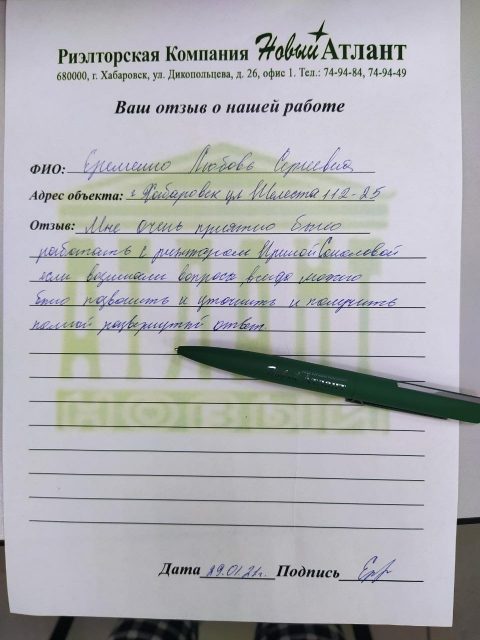 Риэлторская Компания Новый Атлант
680000, г. Хабаровск, ул. Дикопольцева, д. 26, офис 1. Тел.: 74-94-84, 74-94-49
Ваш отзыв о нашей работе
ФИО: Еременко Любовь Сергеевна
Адрес объекта: г. Хабаровск ул Шелеста 112-25
Отзыв: Мне очень приятно было
работать с риэлтором Ириной Соколовой
если возникали вопросы всегда можно
было позвонить и уточнить и получить
полный развернутый ответ.
АТЛАНТ
Дата 29.01.21г. Подпись